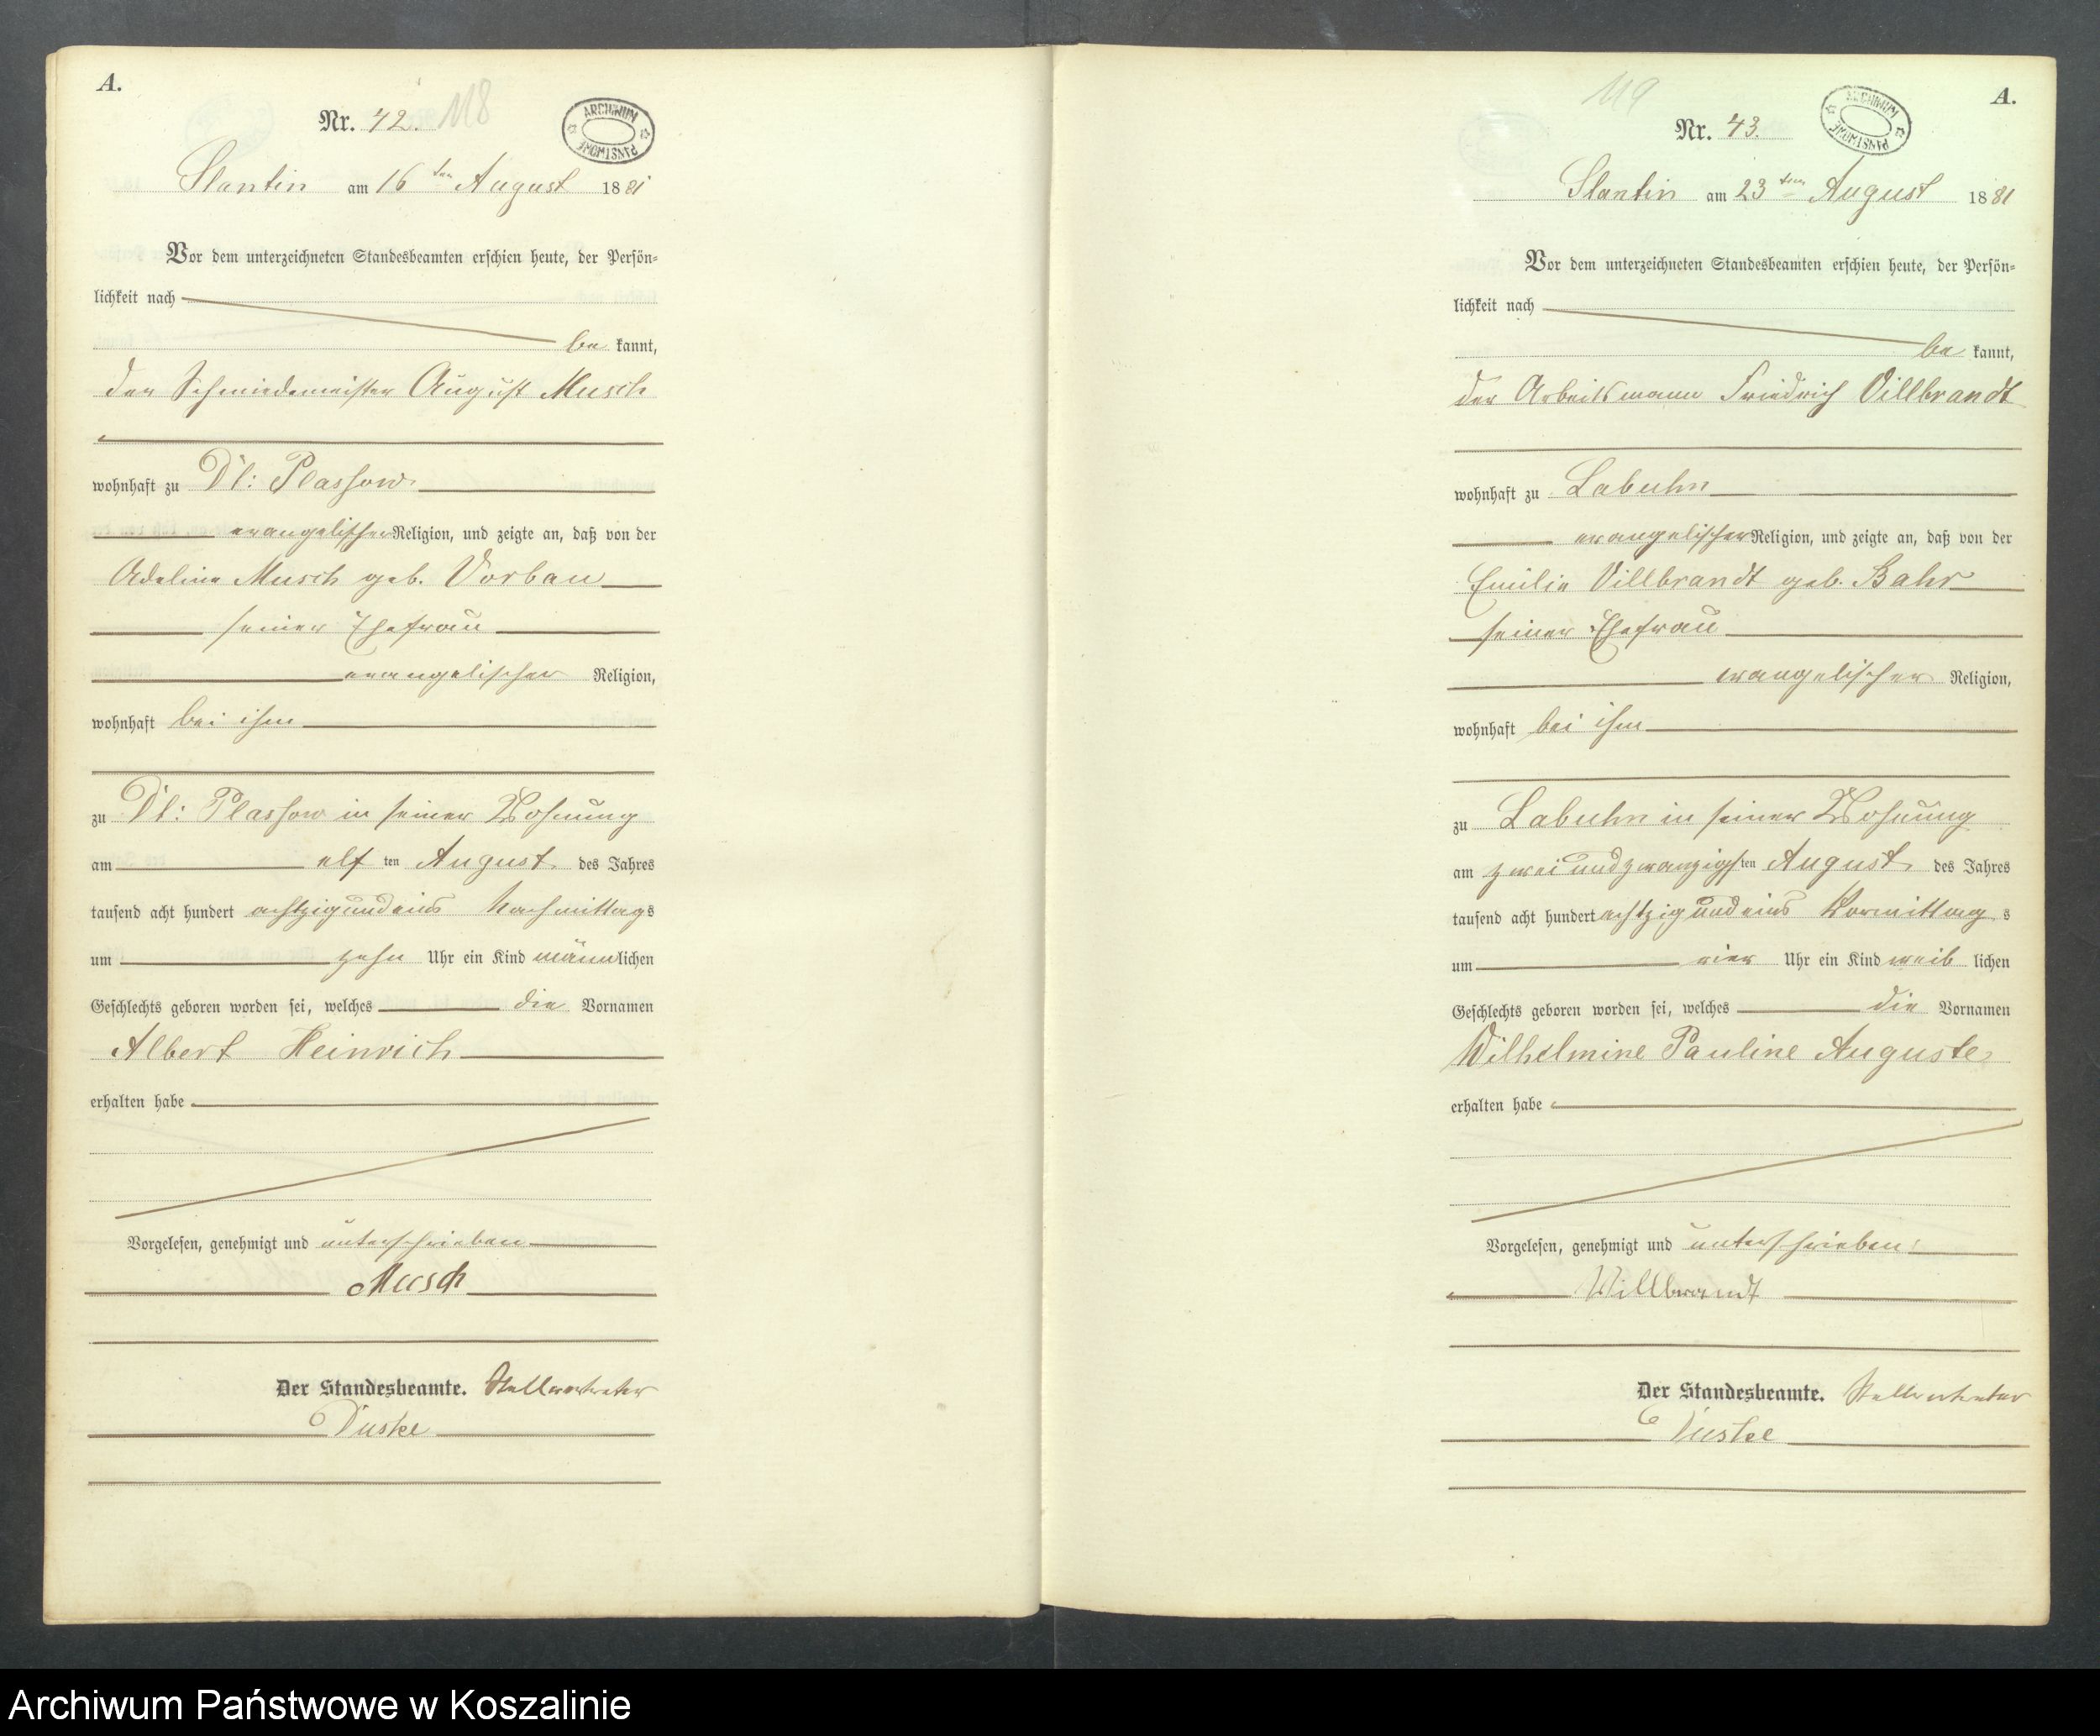 A.
Nr. 42. 118
ARCHIWUM PAŃSTWOWE
Stantin am 16 ten August 1881
Vor dem unterzeichneten Standesbeamten erschien heute, der Persön-
lichkeit nach
be kannt,
der Schmiedemeister August Musch
wohnhaft zu Dt: Plassow
evangelischer Religion, und zeigte an, daß von der
Adeline Musch geb. Vorbau
seiner Ehefrau
evangelischer Religion,
wohnhaft bei ihm
zu Dt: Plassow in seiner Wohnung
am elf ten August des Jahres
tausend acht hundert achtzig und eins Nachmittags
um zehn Uhr ein Kind männlichen
Geschlechts geboren worden sei, welches die Vornamen
Albert Heinrich
erhalten habe
Vorgelesen, genehmigt und unterschrieben
Musch
Der Standesbeamte. Stellvertreter
Duske
A.
119
Nr. 43.
ARCHIWUM PAŃSTWOWE
Stantin am 23 ten August 1881
Vor dem unterzeichneten Standesbeamten erschien heute, der Persön-
lichkeit nach
be kannt,
der Arbeitsmann Friedrich Villbrandt
wohnhaft zu Labuhn
evangelischer Religion, und zeigte an, daß von der
Emilie Villbrandt geb. Bahr
seiner Ehefrau
evangelischer Religion,
wohnhaft bei ihm
zu Labuhn in seiner Wohnung
am zwei und zwanzigsten August des Jahres
tausend acht hundert achtzig und eins Vormittag s
um vier Uhr ein Kind weib lichen
Geschlechts geboren worden sei, welches die Vornamen
Wilhelmine Pauline Auguste
erhalten habe
Vorgelesen, genehmigt und unterschrieben:
Willbrandt
Der Standesbeamte. Stellvertreter
Duske
Archiwum Państwowe w Koszalinie